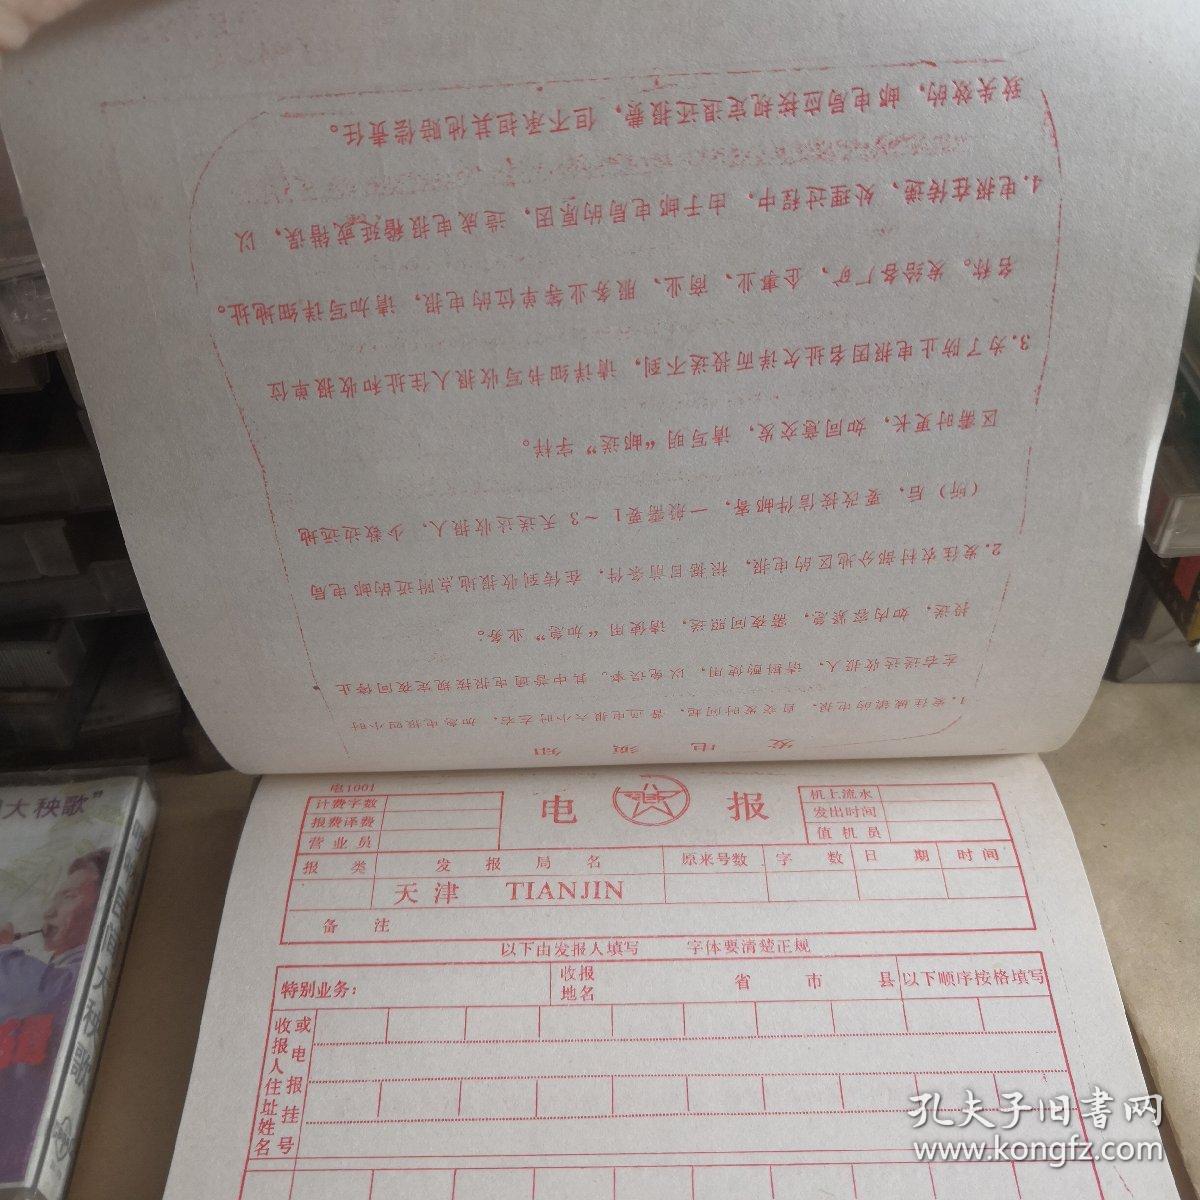 发 电 须 知
1.发往城镇的电报，自交发时间起，普通电报六小时左右，加急电报四小时
左右送达收报人，请斟酌使用，以免误事。其中普通电报按规定夜间停止
投送，如内容紧急，需夜间照送，请使用“加急”业务。
2.发往农村部分地区的电报，根据目前条件，在传到收报地点附近的邮电局
（所）后，要改按信件邮寄，一般需要1～3天送达收报人，少数边远地
区需时更长，如同意交发，请写明“邮送”字样。
3.为了防止电报因名址欠详而投送不到，请详细书写收报人住址和收报单位
名称。发给各厂矿、企事业、商业、服务业等单位的电报，请加写详细地址。
4.电报在传递、处理过程中，由于邮电局的原因，造成电报稽延或错误，以
致失效的，邮电局应按规定退还报费，但不承担其他赔偿责任。
电1001
计费字数
报费译费
营业员
电 报
机上流水
发出时间
值机员
报类 发报局名 原来号数 字数 日期 时间
天津 TIANJIN
备注
以下由发报人填写 字体要清楚正规
特别业务： 收报地名 省 市 县 以下顺序按格填写
收报人住址姓名
或电报挂号
大秧歌”
大秧歌
孔夫子旧書网
www.kongfz.com